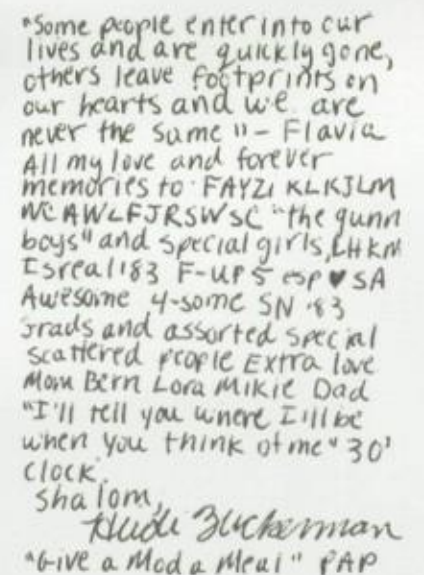 "Some people enter into our
lives and are quickly gone,
others leave footprints on
our hearts and we are
never the same" - Flavia
All my love and forever
memories to FAYZI KLKJLM
NC AWLFJRSWSC "the gunn
boys" and special girls, LHKM
Isreal '83 F-UPS esp ♥ SA
Awesome 4-some SN '83
grads and assorted special
scattered people Extra love
Mom Bern Lora Mikie Dad
"I'll tell you where I'll be
when you think of me" 30'
clock.
Shalom,
Heidi Zuckerman
"Give a Mod a Meal" PAP